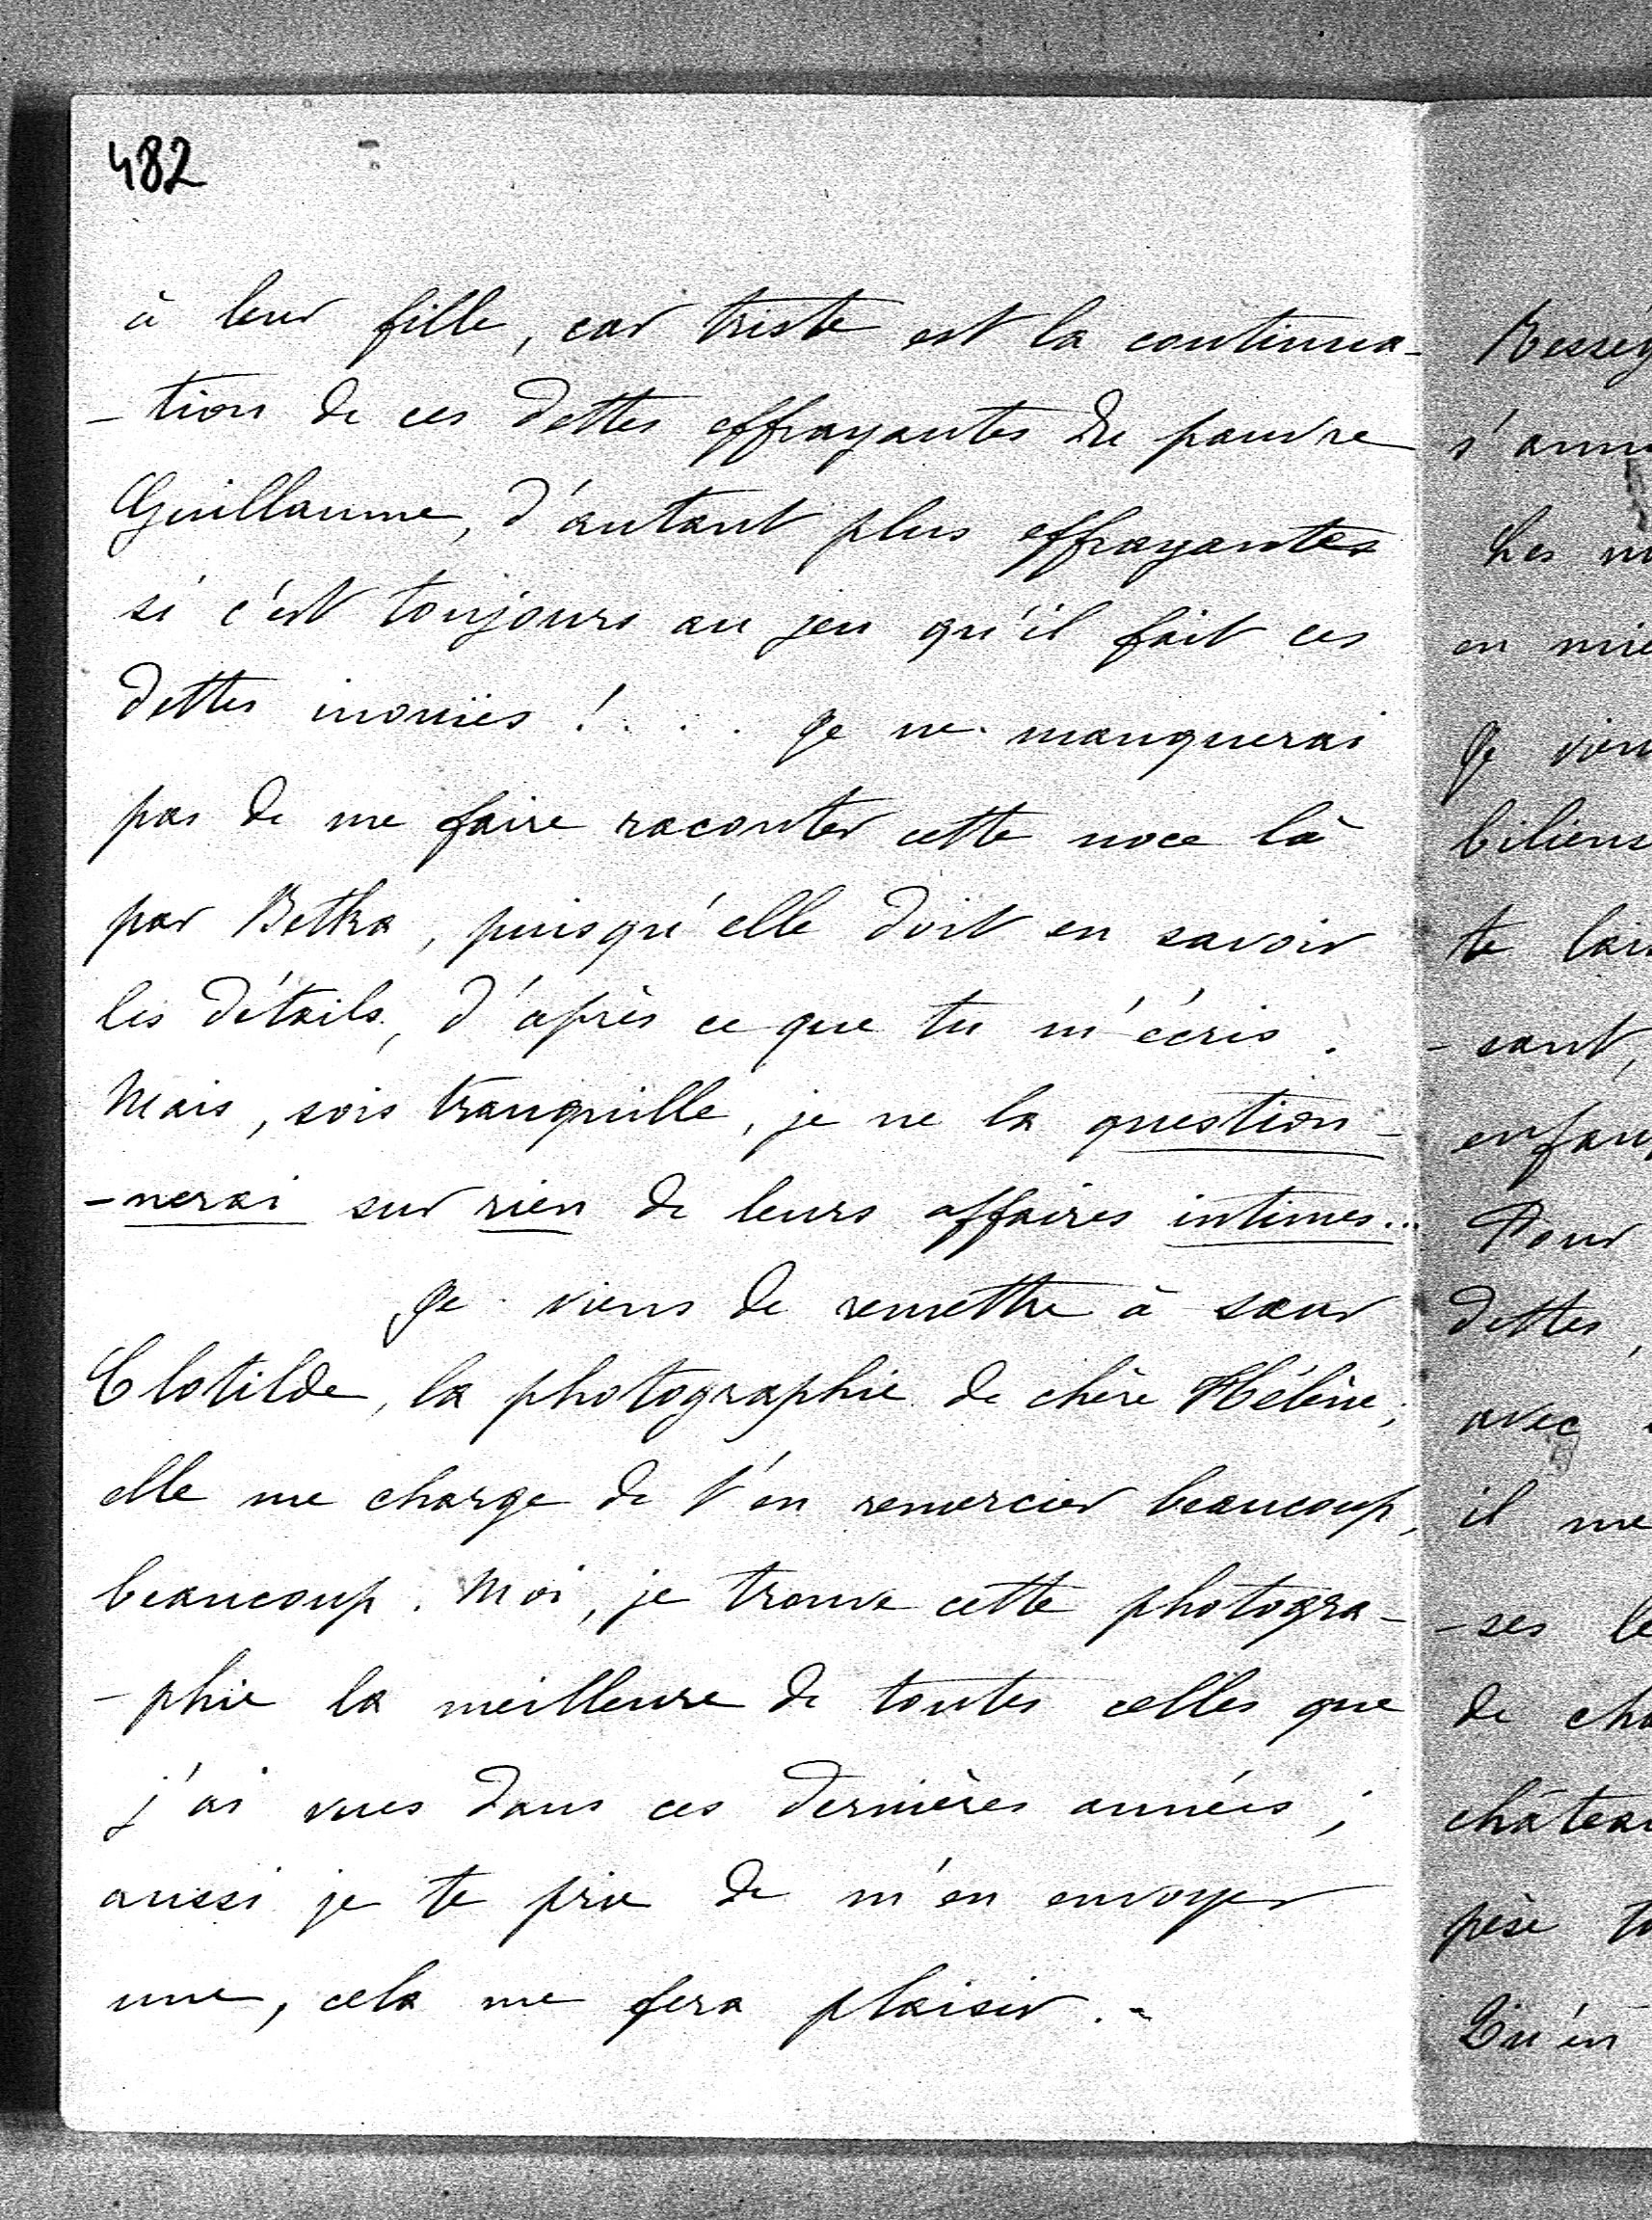 482
à leur fille, car triste est la continua-
-tion de ces dettes effrayantes du pauvre
Guillaume, d'autant plus effrayantes
si c'est toujours au jeu qu'il fait ces
dettes inouïes !... Je ne manquerai
pas de me faire raconter cette noce là
par Betka, puisqu'elle doit en savoir
les détails, d'après ce que tu m'écris.
Mais, sois tranquille, je ne la question-
-nerai sur rien de leurs affaires intimes...
Je viens de remettre à sœur
Clotilde, la photographie de chère Hélène;
elle me charge de t'en remercier beaucoup,
beaucoup. Moi, je trouve cette photogra-
-phie la meilleure de toutes celles que
j'ai vues dans ces dernières années;
aussi je te prie de m'en envoyer
une, cela me fera plaisir.-
s'ann
Les
en mie
Je vien
biliens
te lais
-sant,
enfan
Pour
dettes,
avec
il me
-ses le
de cha
châtea
pèse to
Qu'en